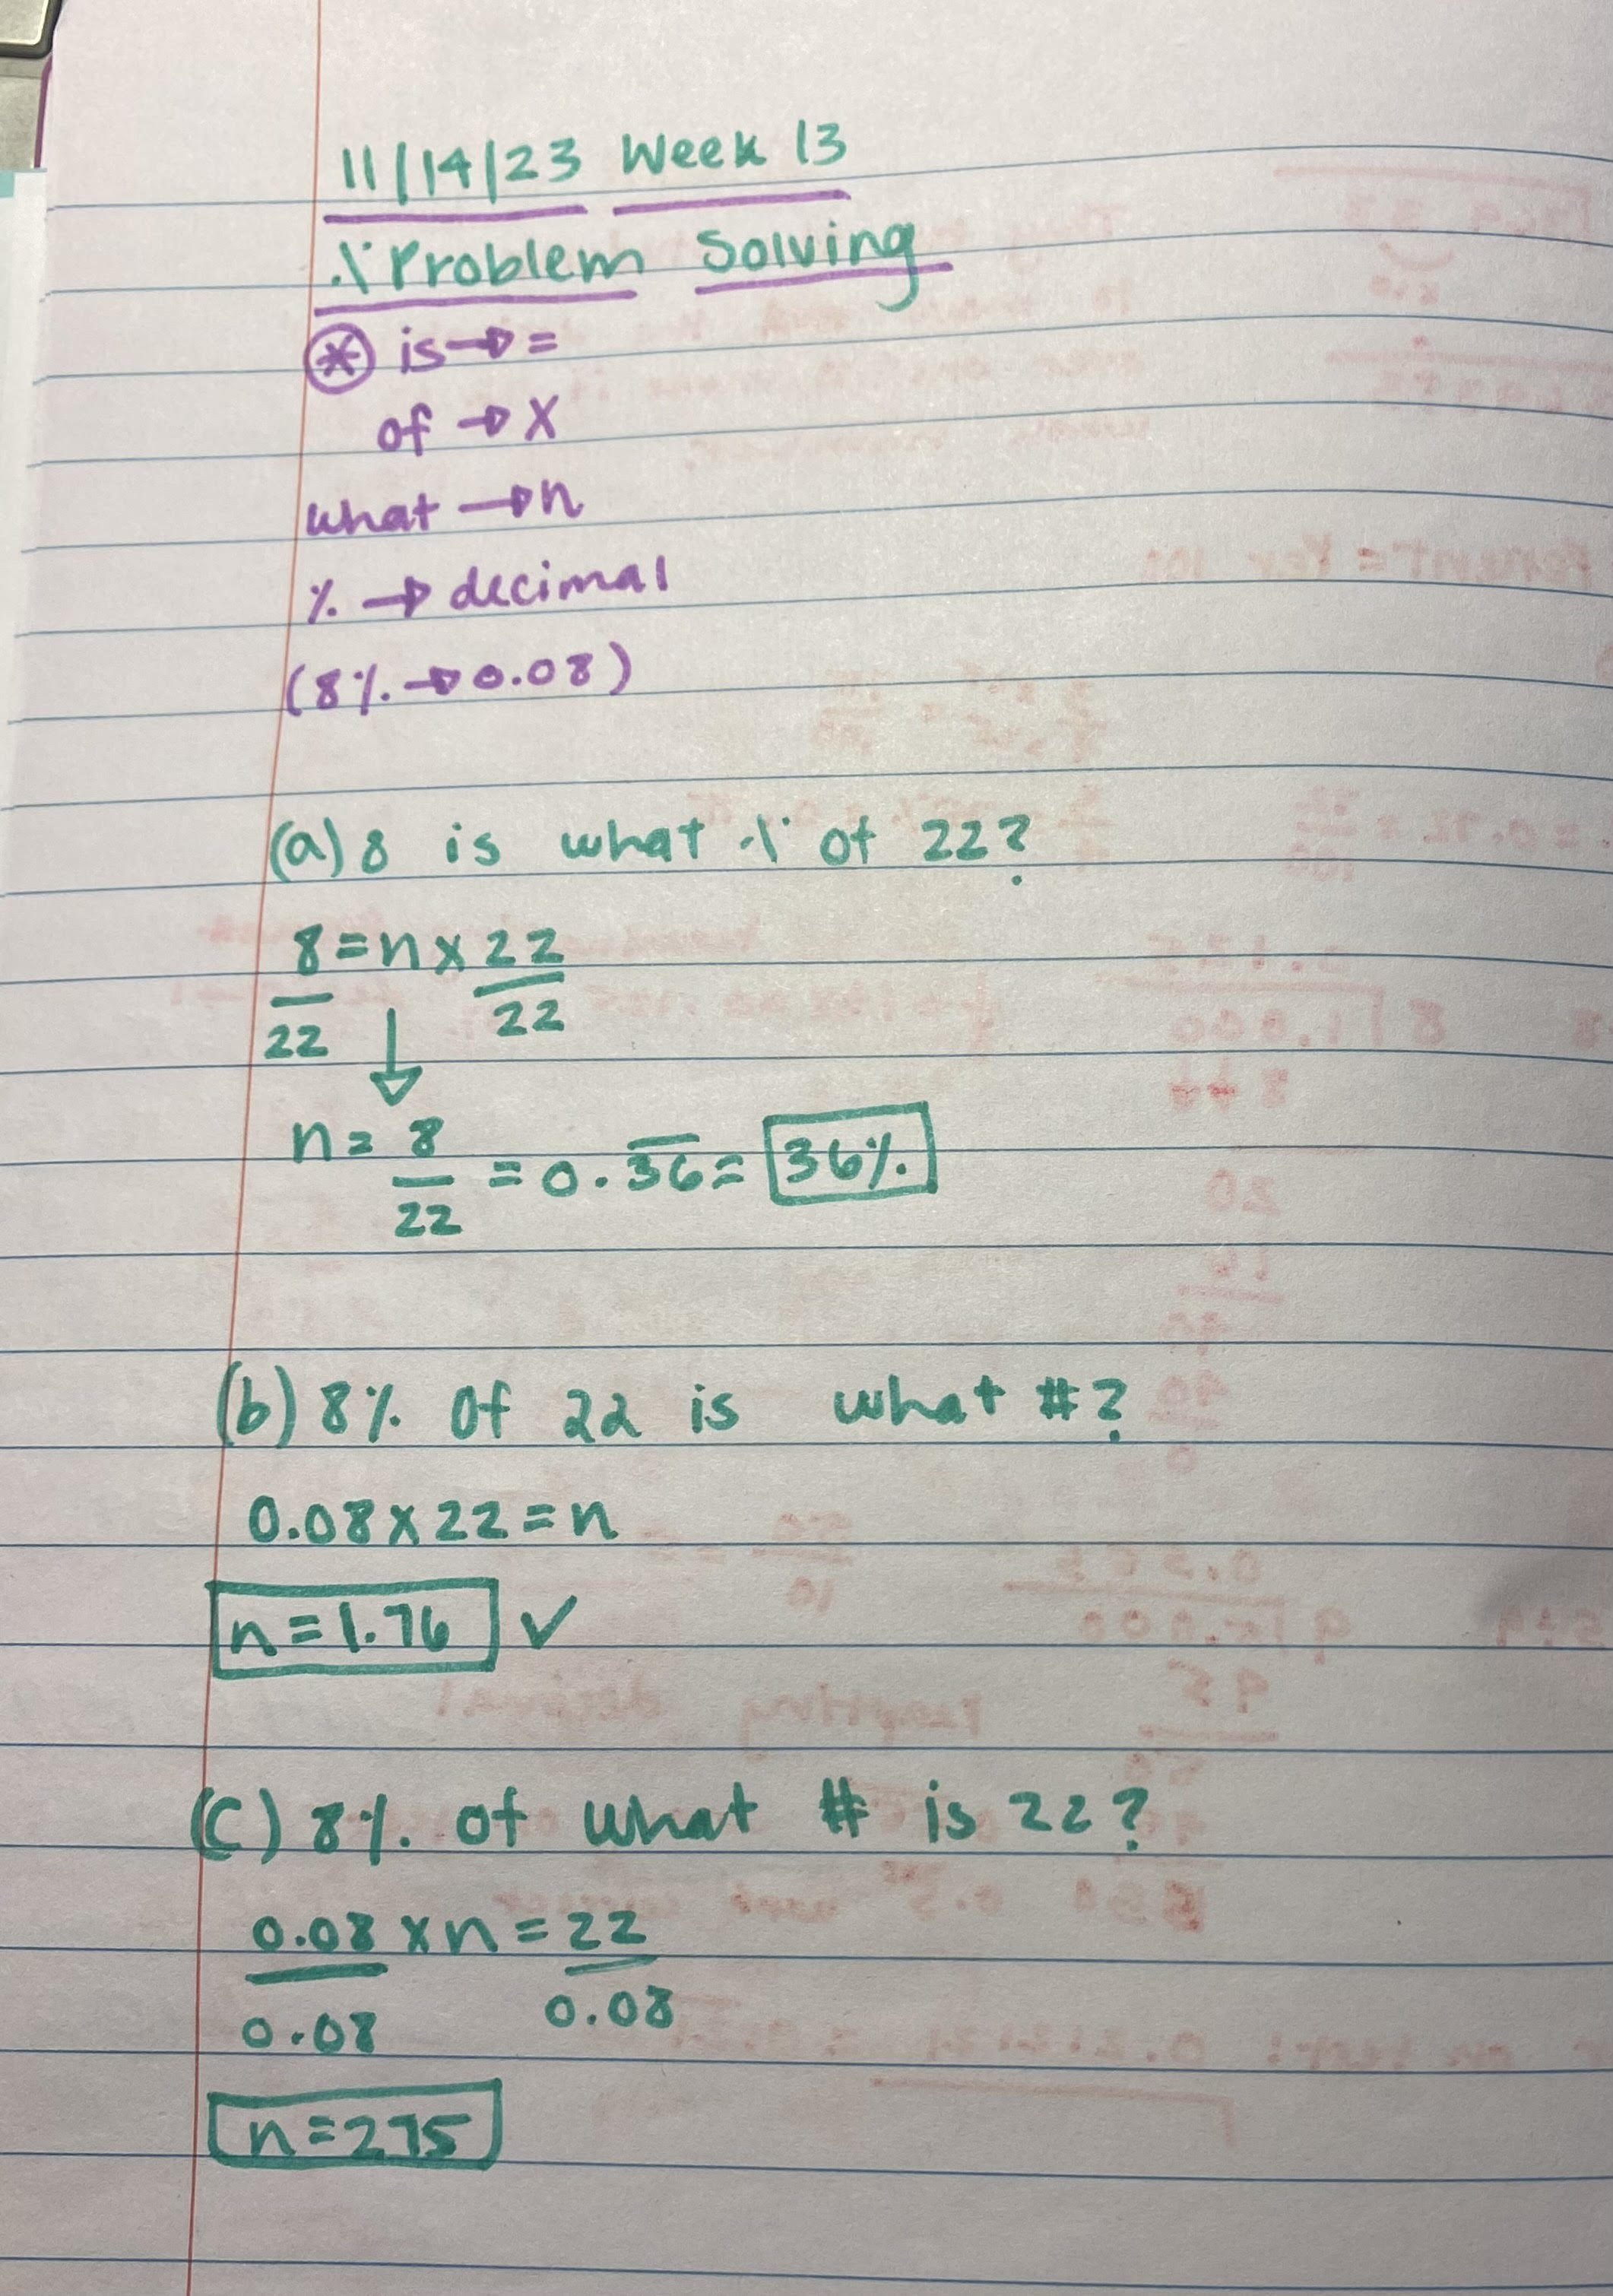 11/14/23 Week 13
% Problem Solving
* is → =
of → x
what → n
% → decimal
(8% → 0.08)
(a) 8 is what % of 22?
8 = n x 22
22 22
n = 8/22 = 0.3̅6̅ = 36%
(b) 8% of 22 is what #?
0.08 x 22 = n
n = 1.76 ✓
(c) 8% of what # is 22?
0.08 x n = 22
0.08 0.08
n = 275